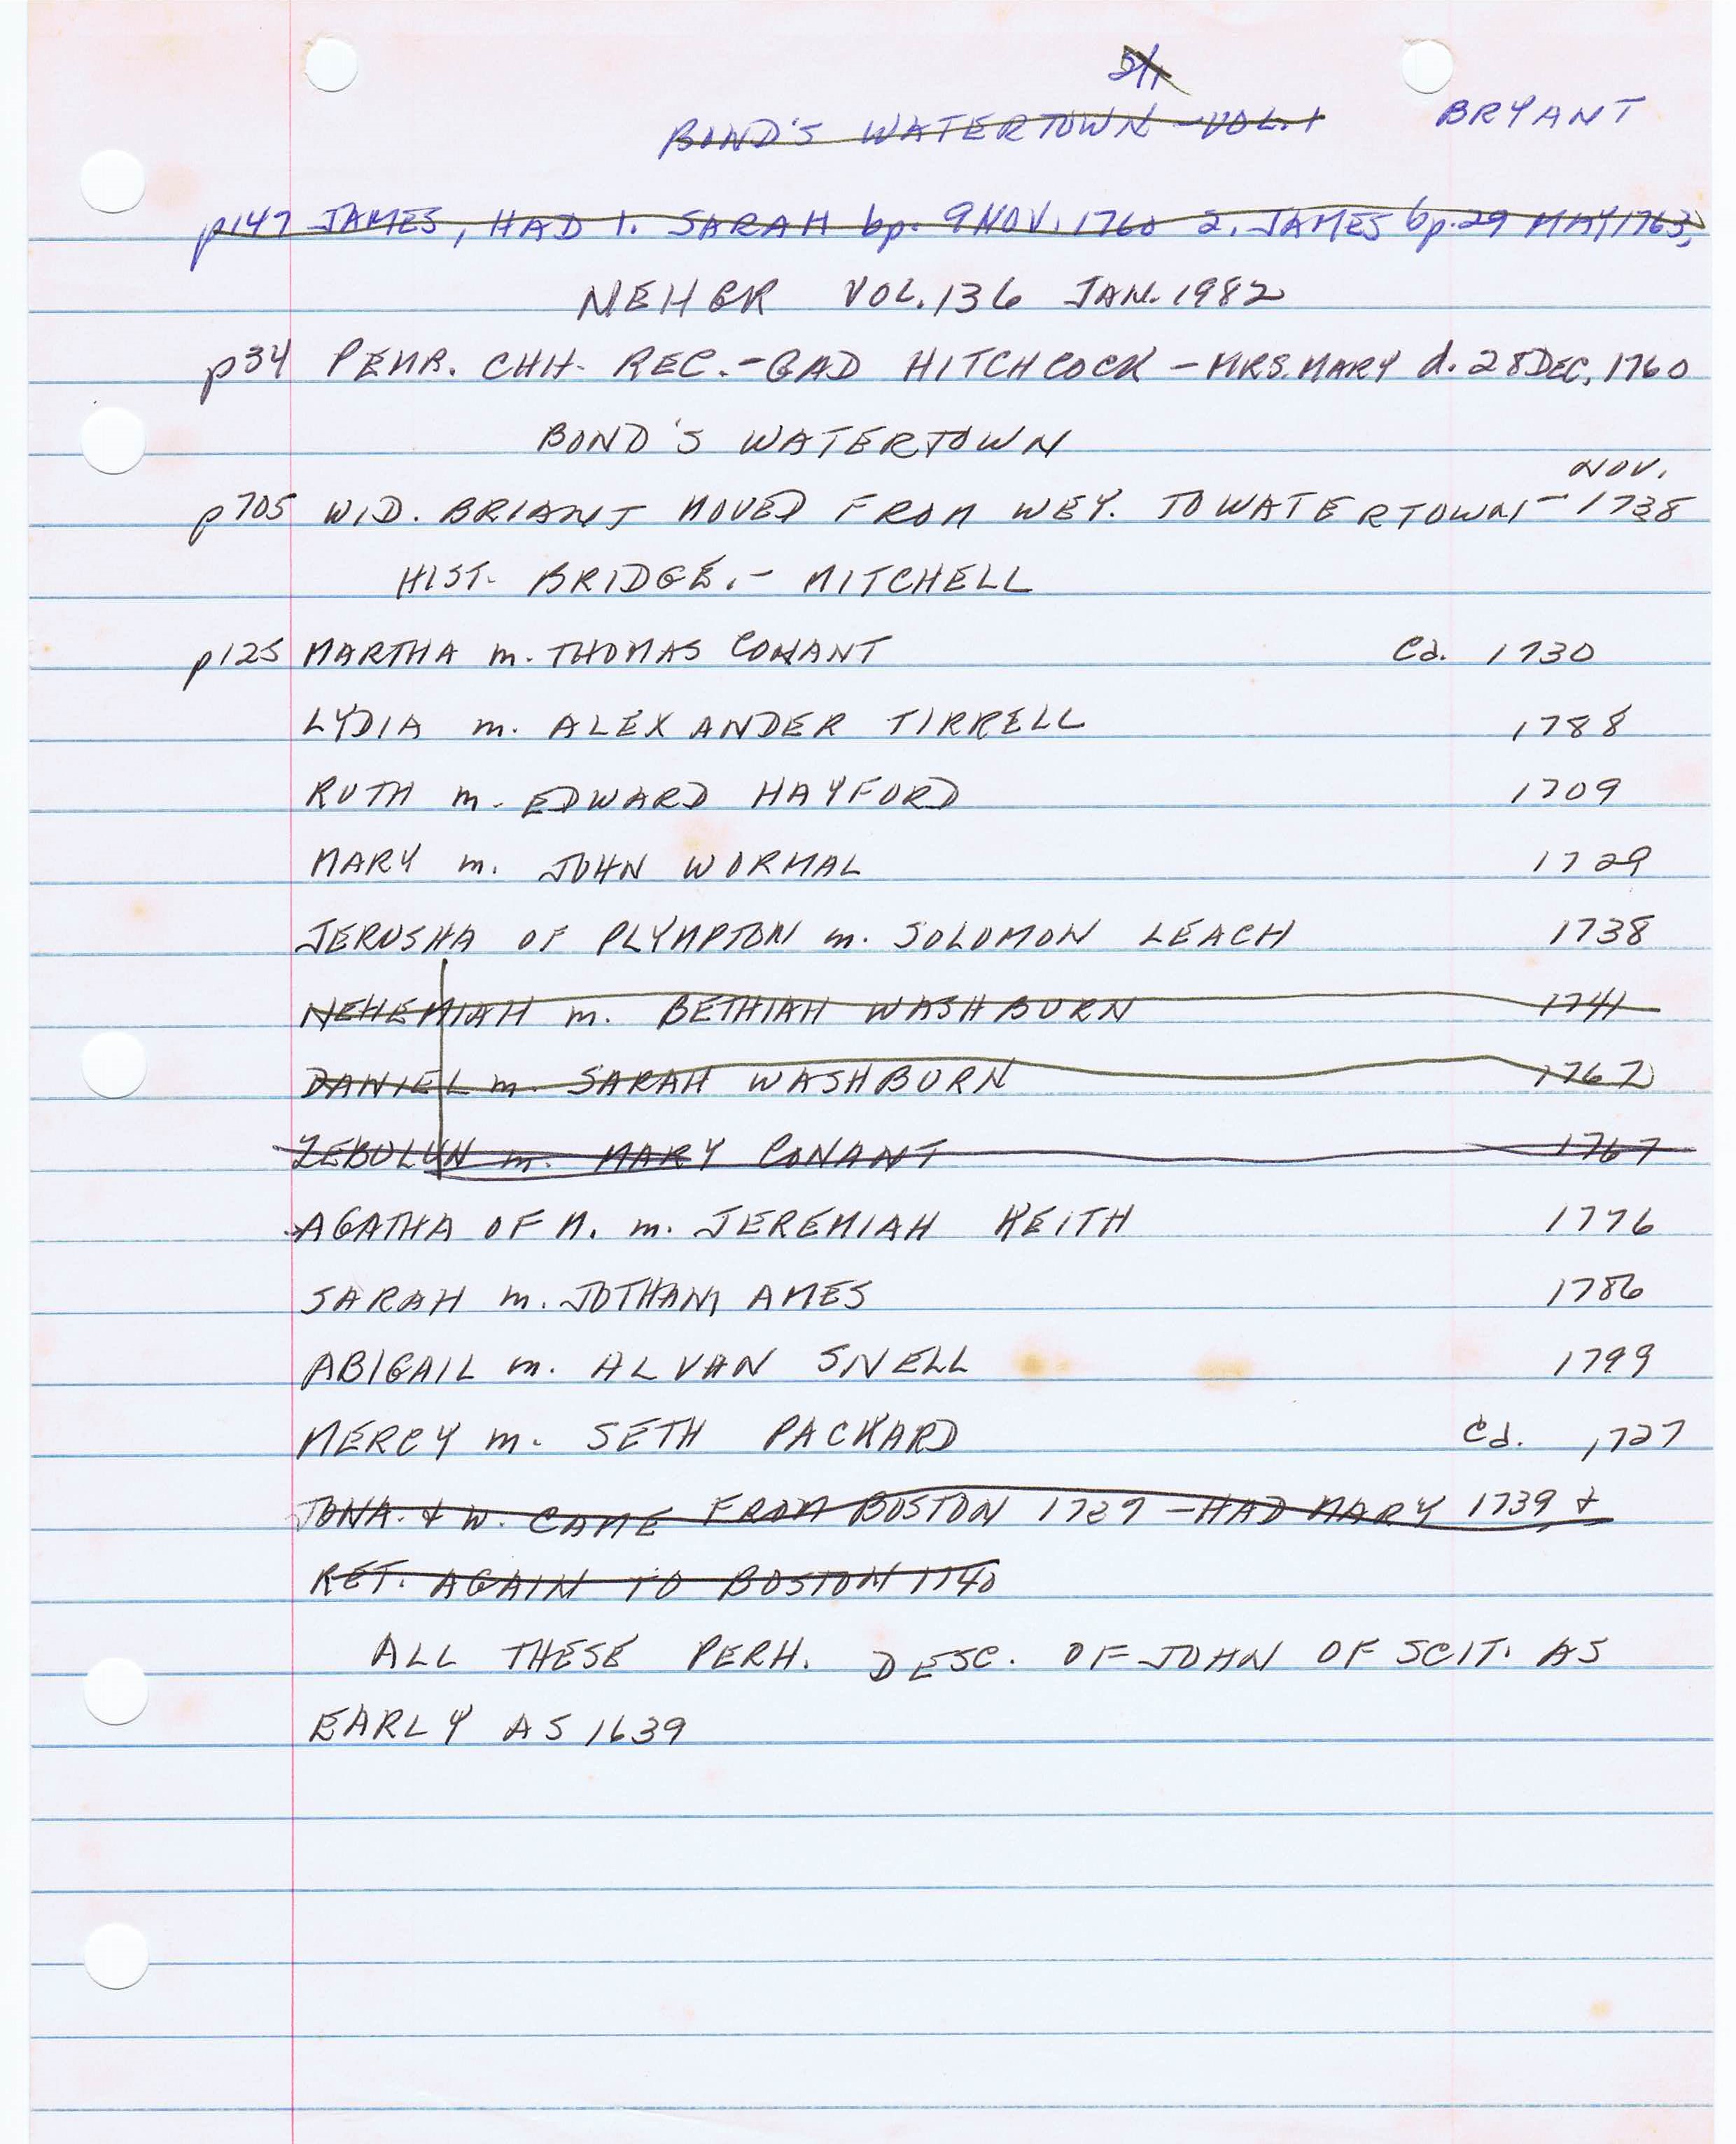 BOND'S WATERTOWN - VOL. 1 BRYANT
p147 JAMES, HAD 1. SARAH bp. 9 NOV. 1760 2. JAMES bp. 29 MAY 1763,
NEHGR VOL. 136 JAN. 1982
p34 PEMB. CHH. REC. - GAD HITCHCOCK - MRS. MARY d. 28 DEC, 1760
BOND'S WATERTOWN
NOV.
p705 WID. BRIANT MOVED FROM WEY. TO WATERTOWN - 1738
HIST. BRIDGE. - MITCHELL
p125 MARTHA m. THOMAS CONANT Ca. 1730
LYDIA m. ALEXANDER TIRRELL 1788
RUTH m. EDWARD HAYFORD 1709
MARY m. JOHN WORMAL 1729
JERUSHA OF PLYMPTON m. SOLOMON LEACH 1738
NEHEMIAH m. BETHIAH WASHBURN 1741
DANIEL m. SARAH WASHBURN 1767
ZEBULUN m. MARY CONANT 1767
AGATHA OF M. m. JEREMIAH KEITH 1776
SARAH m. JOTHAM AMES 1786
ABIGAIL m. ALVAN SNELL 1799
MERCY m. SETH PACKARD Ca. 1727
JONA. & W. CAME FROM BOSTON 1739 - HAD MARY 1739 &
RET. AGAIN TO BOSTON 1740
ALL THESE PERH. DESC. OF JOHN OF SCIT. AS
EARLY AS 1639